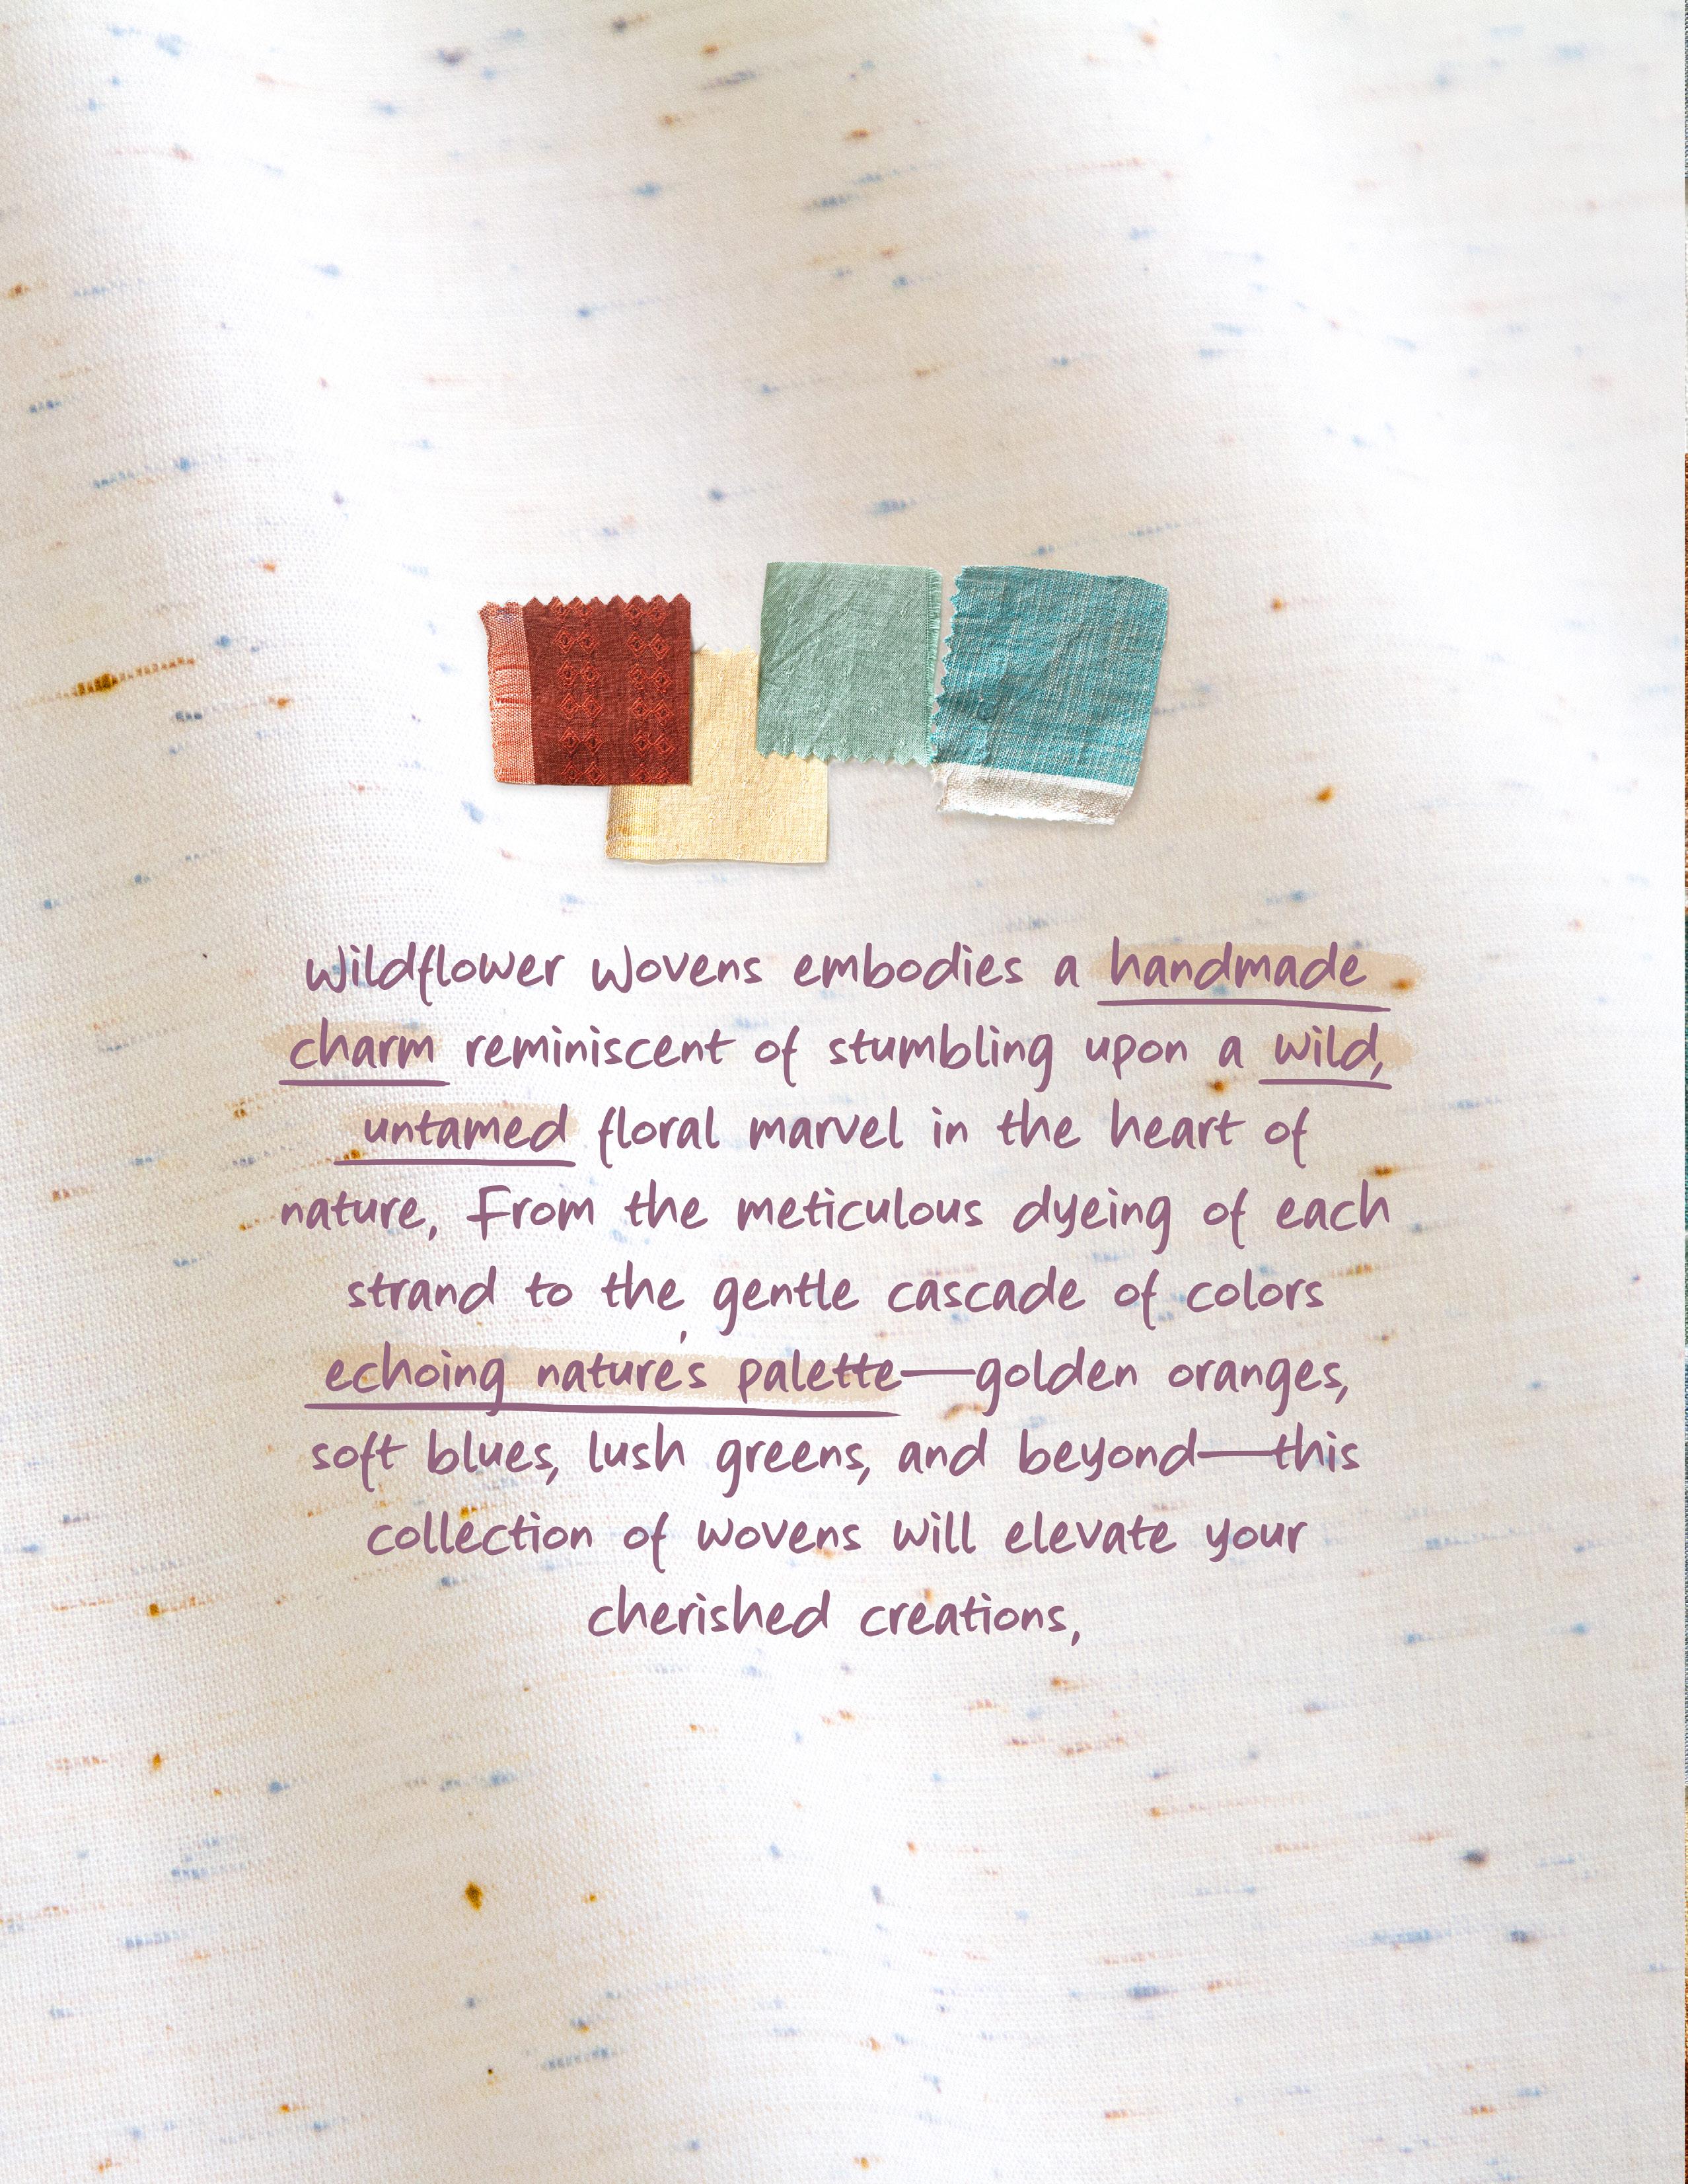 Wildflower Wovens embodies a handmade
charm reminiscent of stumbling upon a wild,
untamed floral marvel in the heart of
nature, From the meticulous dyeing of each
strand to the gentle cascade of colors
echoing nature's palette—golden oranges,
soft blues, lush greens, and beyond—this
collection of wovens will elevate your
cherished creations,